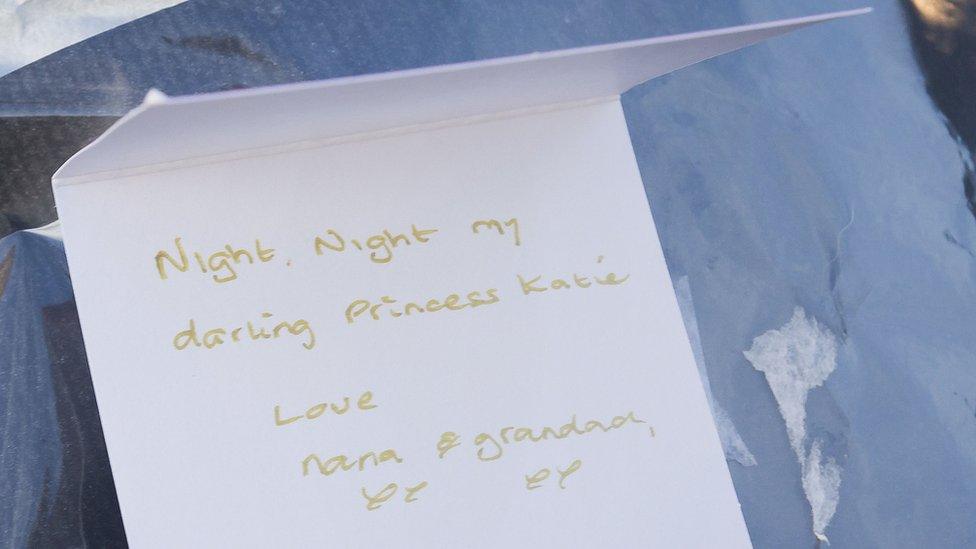 Night. Night my
darling Princess Katie
Love
nana & grandad,
xx xx